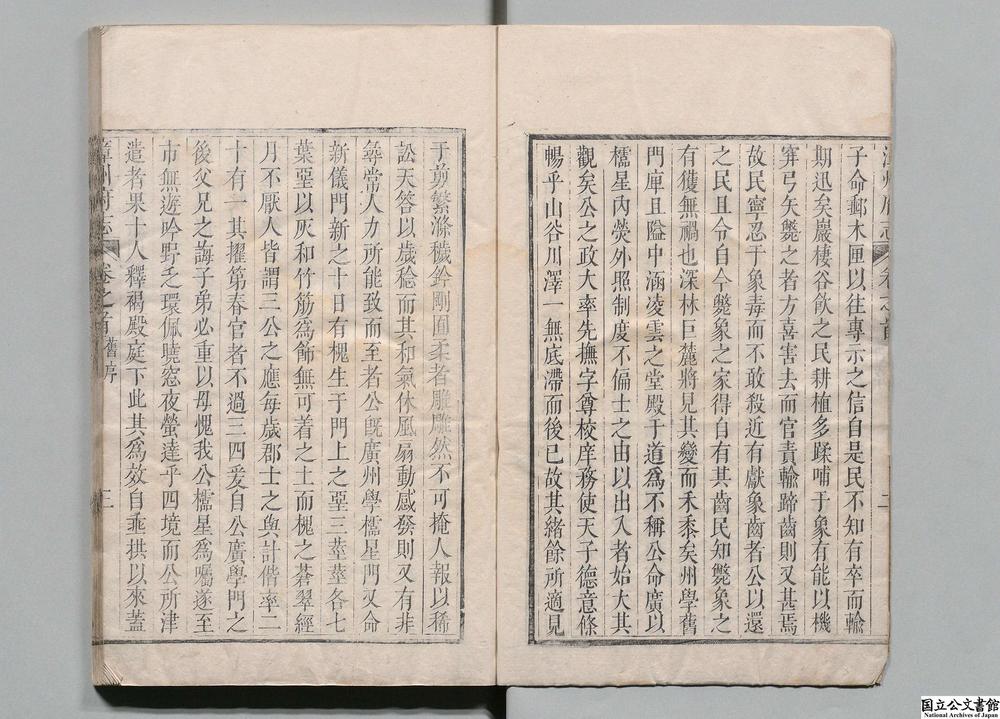 漳州府志 卷之首 二
子命郵木匣以往專示之信自是民不知有卒而輸
期迅矣巖棲谷飲之民耕植多蹂哺于象有能以機
穽弓矢斃之者方喜害去而官責輸蹄齒則又甚焉
故民寧忍于象毒而不敢殺近有獻象齒者公以還
之民且令自今斃象之家得自有其齒民知斃象之
有獲無禍也深林巨麓將見其變而禾黍矣州學舊
門庳且隘中涵凌雲之堂殿于道為不稱公命廣以
櫺星內熒外照制度不偏士之由以出入者始大其
觀矣公之政大率先撫字尊校庠務使天子德意條
暢乎山谷川澤一無底滯而後已故其緒餘所適見
于剪繁滌穢鈐剛圉柔者雕雕然不可掩人報以稀
訟天答以歲稔而其和氣休風扇動感發則又有非
尋常人力所能致而至者公既廣州學櫺星門又命
新儀門新之十日有槐生于門上之堊三莖莖各七
葉堊以灰和竹筋為飾無可着之土而槐之蒼翠經
月不厭人皆謂三公之應每歲郡士之與計偕率二
十有一其擢第春官者不過三四爰自公廣學門之
後父兄之誨子弟必重以毋愧我公櫺星為囑遂至
市無遊吟野乏環佩曉窓夜螢達乎四境而公所津
遣者果十人釋褐殿庭下此其為效自垂拱以來蓋
漳州府志 卷之首 舊序 三
国立公文書館
National Archives of Japan